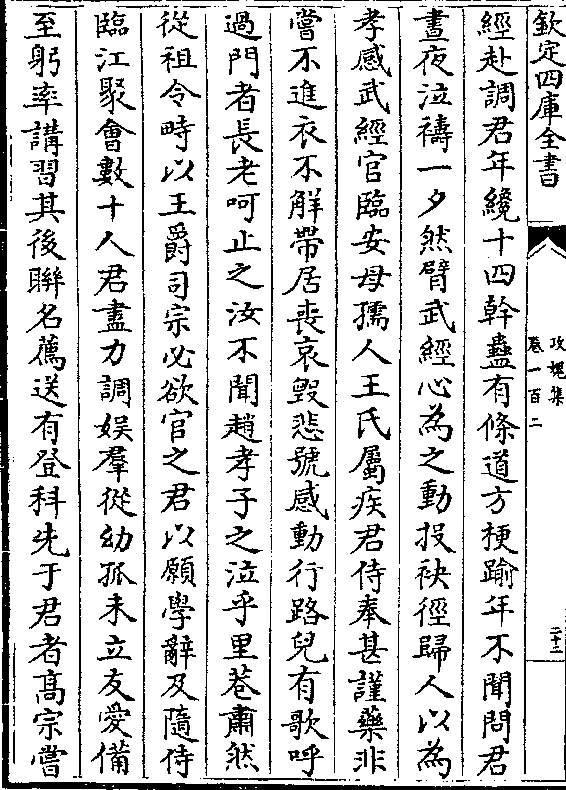 欽定四庫全書
攻媿集
卷一百二
二十二
經赴調君年纔十四幹蠱有條道方梗踰年不聞問君
晝夜泣禱一夕然臂武經心為之動投袂徑歸人以為
孝感武經官臨安母孺人王氏屬疾君侍奉甚謹藥非
嘗不進衣不解帶居喪哀毀悲號感動行路兒有歌呼
過門者長老呵止之汝不聞趙孝子之泣乎里巷肅然
從祖令畤以王爵司宗必欲官之君以願學辭及隨侍
臨江聚會數十人君盡力調娱羣從幼孤未立友愛備
至躬率講習其後聨名薦送有登科先于君者髙宗嘗